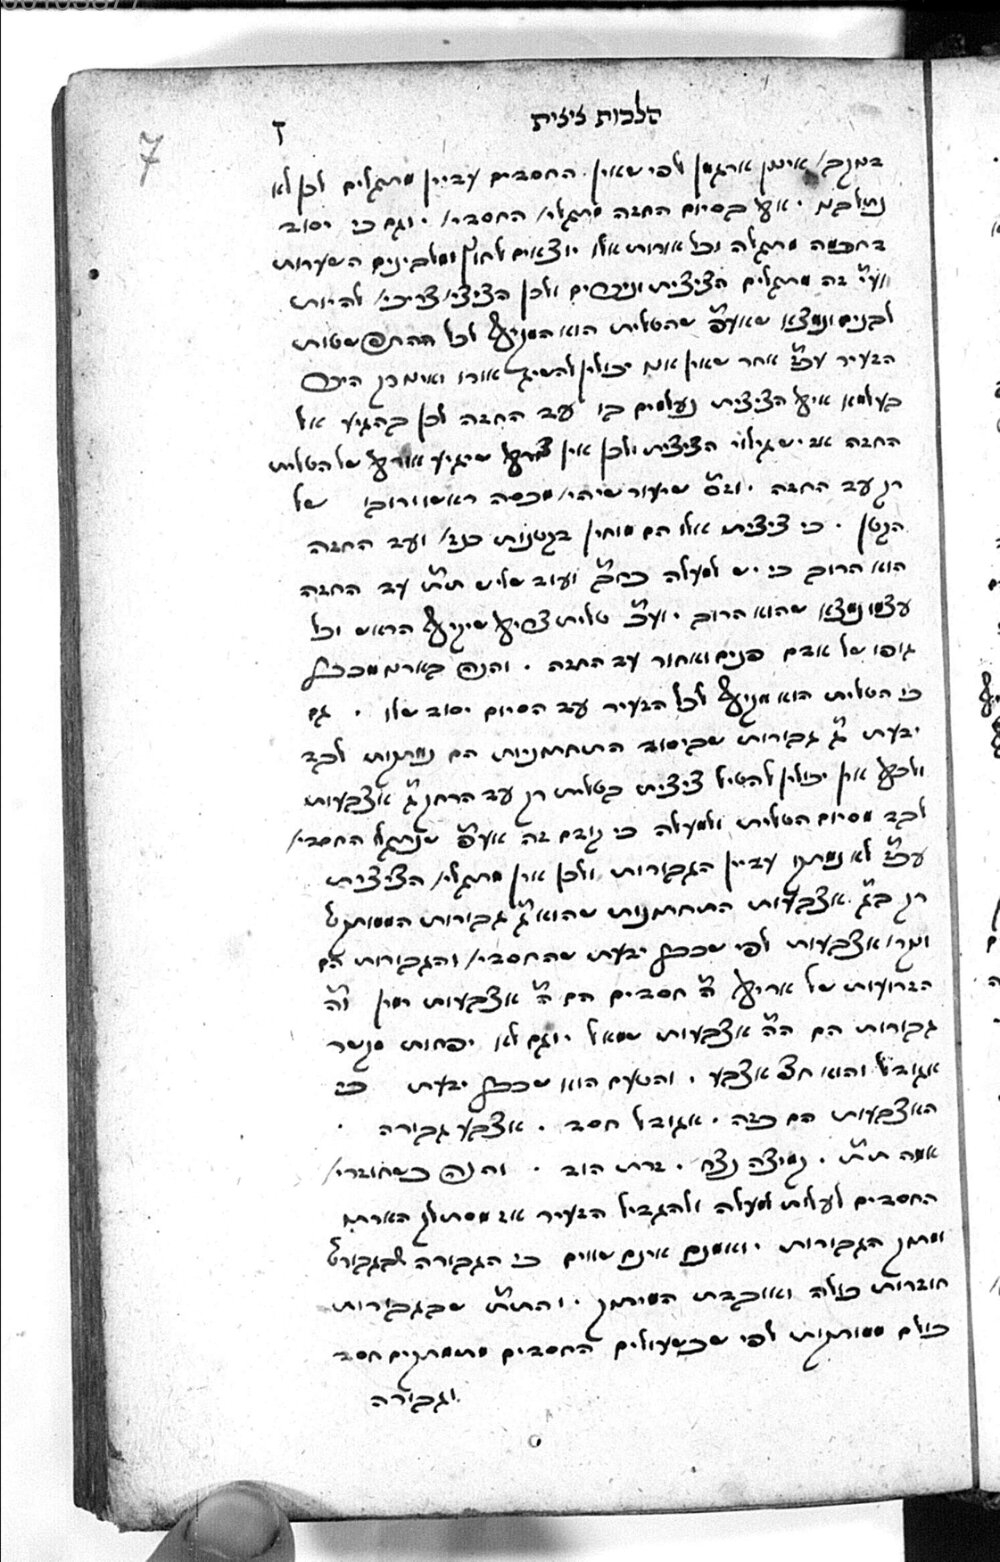 הלכות ציצית
ז
7
אינן ארגמן לפי שאין החסדים עדיין מתגלים לכן לא
אצל בסיום החזה מתגלי׳ החסדי׳ . וגם כי יסוד
בחכמה מתגלה וכל אורות אלו יוצאים לחוץ ומלבינים השערות
וע״י זה מתגלים הציצית ולכן הציצי׳ צריכי׳ להיות
לבנים ונמצא שאעפ״י שהטלית הוא המקיף לכל ההתפשטות
הזעיר עכ״ז אחר שאין אנו יכולין להשיג אורו ואימתי
הציצית נעלמים בו עד החזה לכן בהגיע אל
החזה אז יש גילוי הציצית ולכן אין צורך שיגיע אורך של הטלית
רק עד החזה . וז״ס שיעור שיהי׳ מכסה ראשו ורובו של
הקטן . כי ציצית אלו הם מוחין דקטנות כנז׳ ועד החזה
הוא הרוב כי יש למעלה כחב״ד ועוד שליש ת״ת עד החזה
עצמו נמצא שהוא הרוב . וע״כ טלית צריך שיקיף הראש וכל
גופו של אדם פנים ואחור עד החזה . והנה
כי הטלית הוא מקיף לכל הזעיר עד הסיום יסוד שלו . גם
ידעת ג״ג גבורות שביסוד התחתוניות הם נמתקות לבד
ולכן אין יכולין להטיל ציצית בטלית רק עד הרחק ג״א אצבעות
לבד מסיום הטלית ולמעלה כי קודם זה אעפ״י שנתגלו החסדי׳
עכ״ז לא נמתקו עדיין הגבורות ולכן אין מתגלי׳ הציצית
רק בג״א אצבעות התחתונות שהוא ג״ג גבורות הממותקות
ונקר׳ אצבעות לפי שכבר ידעת שהחסדי׳ והגבורות הם
הזרועות של אריך ה״ח חסדים הם ה״א אצבעות ימין וה״ג
גבורות הם הה״א אצבעות שמאל . וגם לא יפחות מקשר
אגודל והוא חצי אצבע . והטעם הוא שכבר ידעת כי
האצבעות הם כזה . אגודל חסד . אצבע גבורה .
אמה ת״ת . קמיצה נצח . זרת הוד . והנה כשחוזרי׳
החסדים לעלות למעלה להגדיל הזעיר אז
ומתק הגבורות . ואמנם אינם שווים כי הגבורה שבגבורות
חוזרות כולה ואובדת המיתוק . והת״ת שבגבורות
כולם ממותקות לפי שכשעולים החסדים מתמתקים חסד
וגבורה